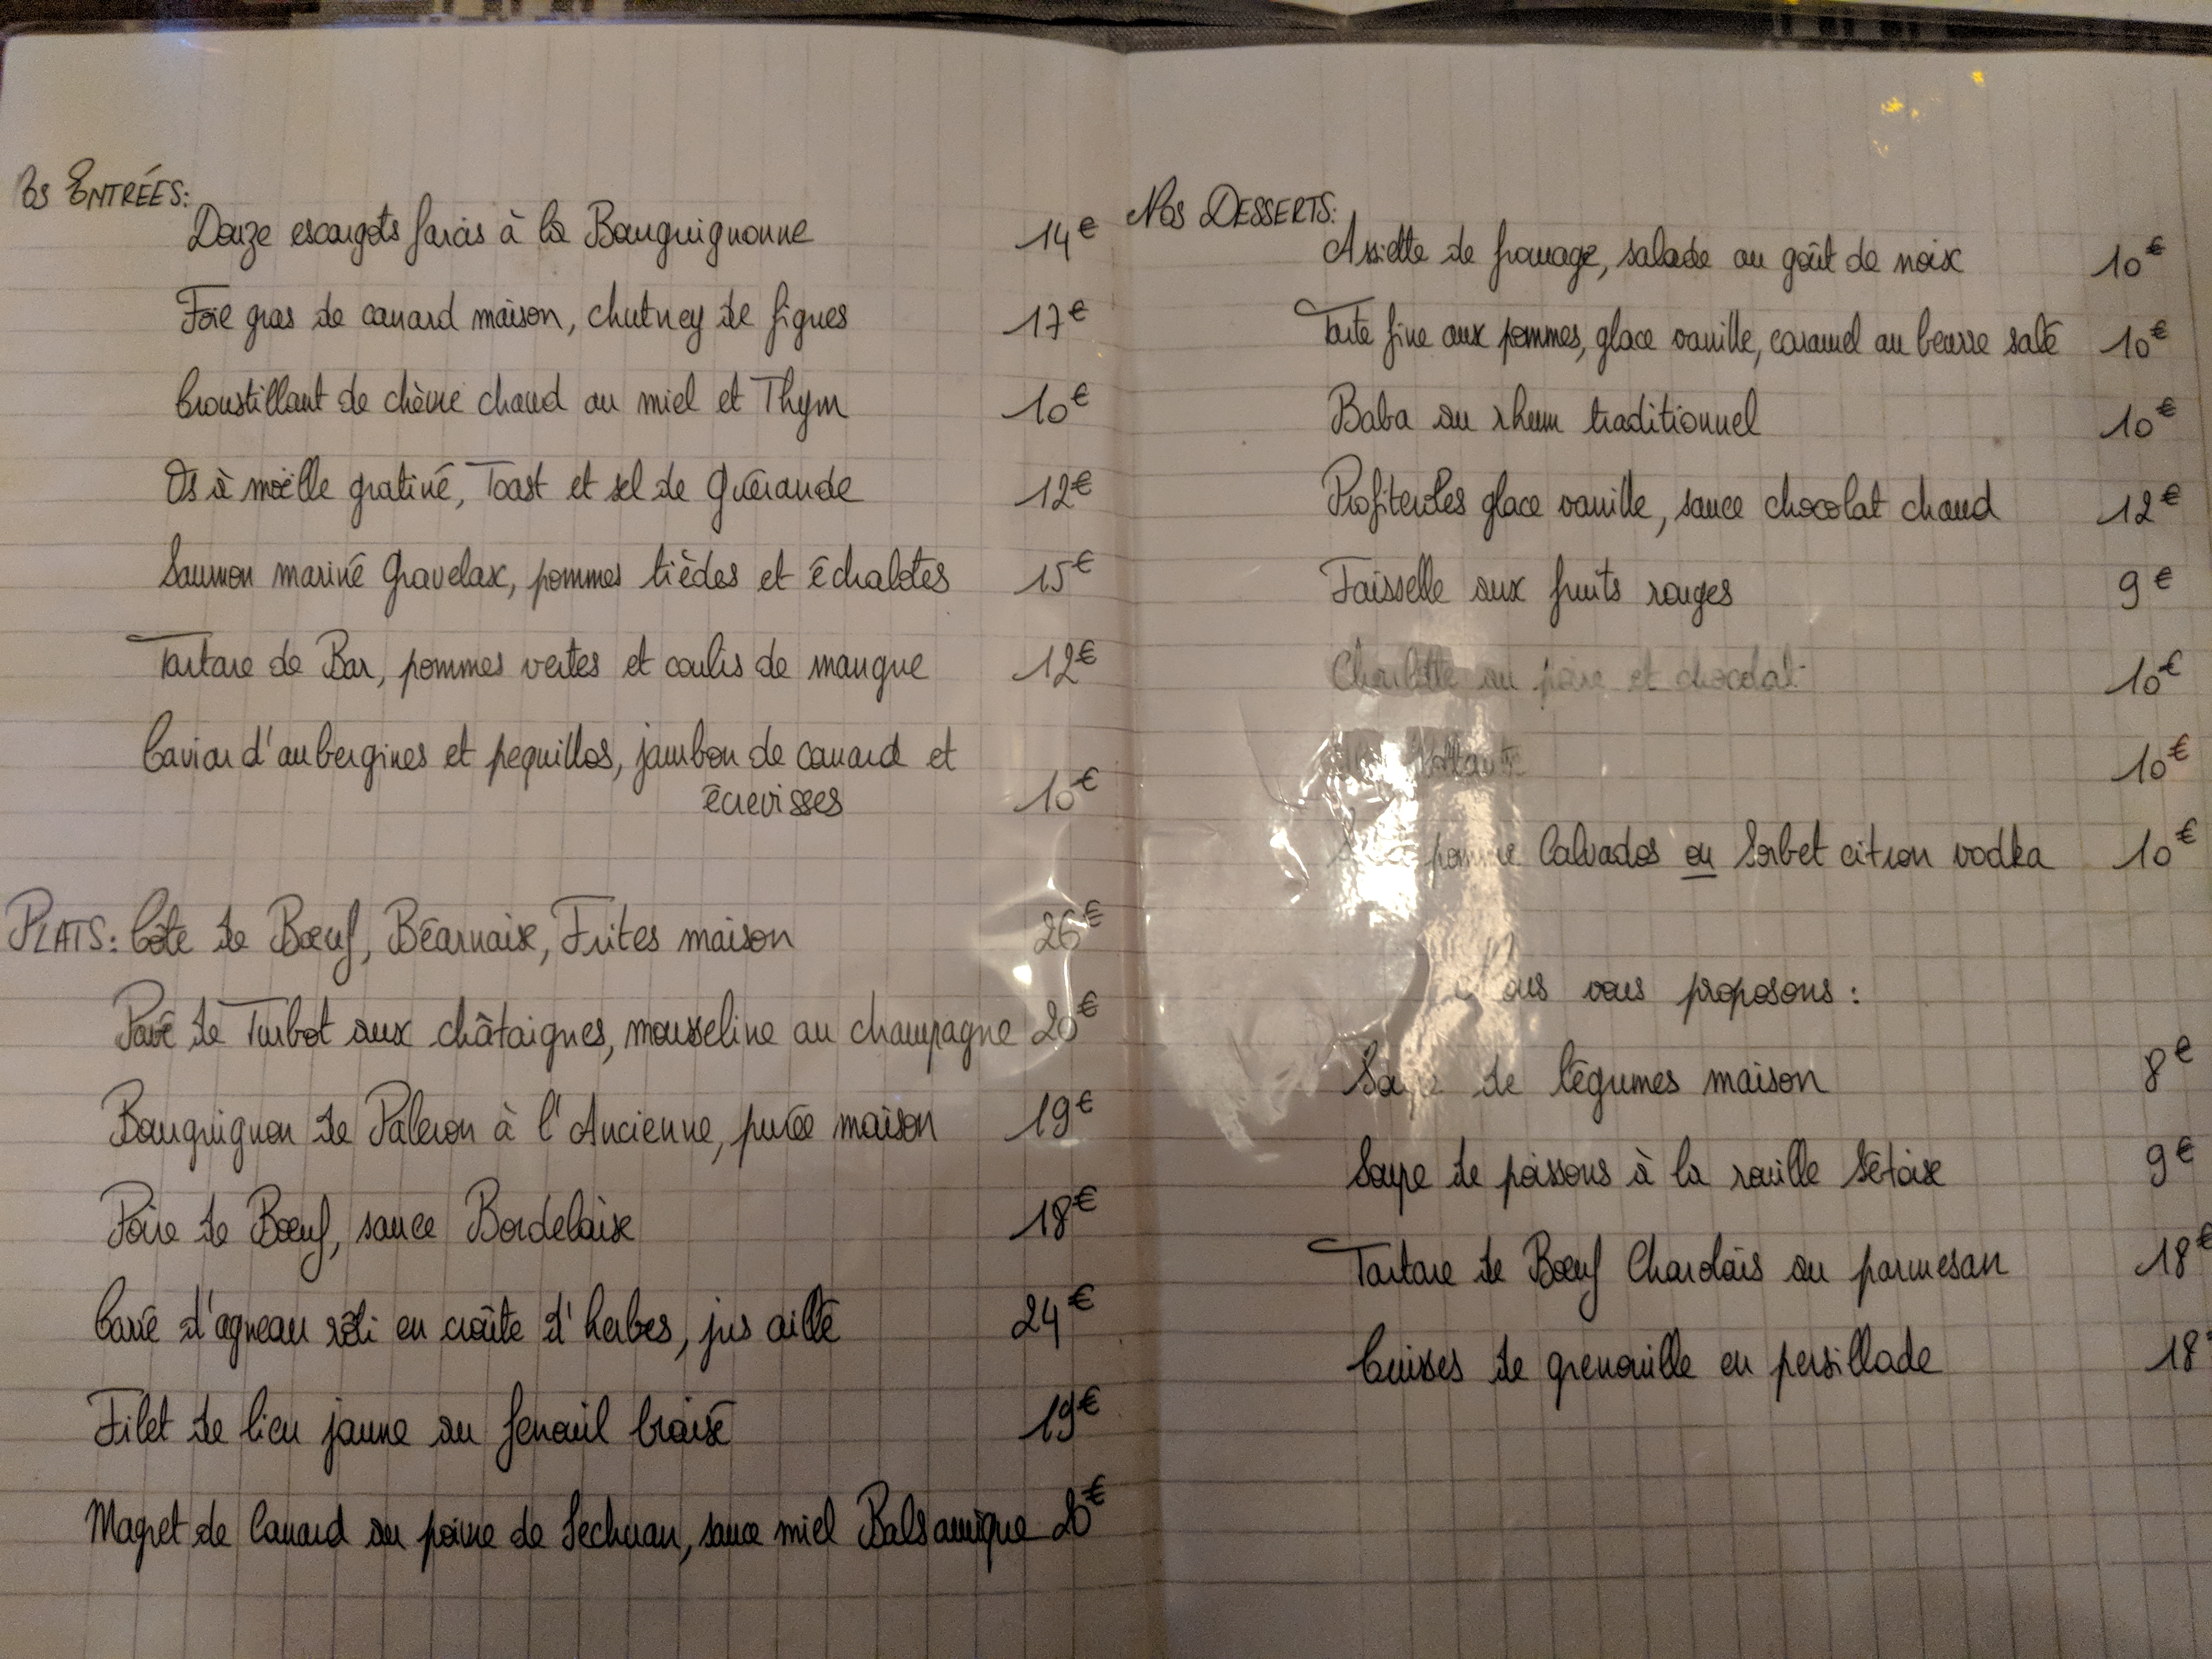 os ENTRÉES:
Douze escargots farcis à la Bourguignonne 14€
Foie gras de canard maison, chutney de figues 17€
Croustillant de chèvre chaud au miel et Thym 10€
Os à moëlle gratiné, Toast et sel de Guérande 12€
Saumon mariné Gravelax, pommes tièdes et échalotes 15€
Tartare de Bar, pommes vertes et coulis de mangue 12€
Caviar d'aubergines et pequillos, jambon de canard et
écrevisses 10€
PLATS: Côte de Bœuf, Béarnaise, Frites maison 26€
Pavé de Turbot aux châtaignes, mousseline au champagne 20€
Bourguignon de Paleron à l'Ancienne, purée maison 19€
Poire de Bœuf, sauce Bordelaise 18€
Carré d'agneau rôti en croûte d'herbes, jus aillé 24€
Filet de lieu jaune au fenouil braisé 19€
Magret de Canard au poivre de Sechuan, sauce miel Balsamique 20€
Nos DESSERTS:
Assiette de fromage, salade au goût de noix 10€
Tarte fine aux pommes, glace vanille, caramel au beurre salé 10€
Baba au rhum traditionnel 10€
Profiteroles glace vanille, sauce chocolat chaud 12€
Faisselle aux fruits rouges 9€
Charlotte au poire et chocolat 10€
10€
Calvados ou Sorbet citron vodka 10€
vous proposons:
de légumes maison 8€
Soupe de poissons à la rouille Sétoise 9€
Tartare de Bœuf Charolais au parmesan 18€
Cuisses de grenouille en persillade 18